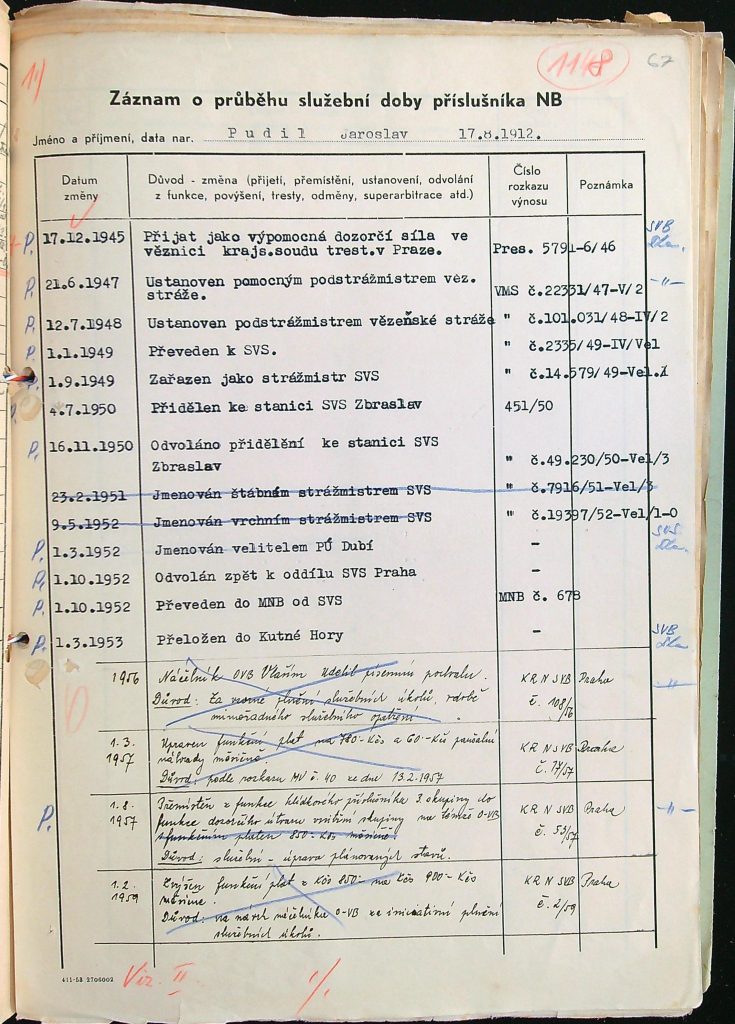 1148
67
Záznam o průběhu služební doby příslušníka NB
Jméno a příjmení, data nar. Pudil Jaroslav 17.8.1912.
Datum změny
Důvod - změna (přijetí, přemístění, ustanovení, odvolání z funkce, povýšení, tresty, odměny, superarbitrace atd.)
Číslo rozkazu výnosu
Poznámka
P. 17.12.1945 Přijat jako výpomocná dozorčí síla ve SVB
věznici krajs.soudu trest.v Praze. Pres. 5791-6/46
P. 21.6.1947 Ustanoven pomocným podstrážmistrem věz. -"-
stráže. VMS č.22331/47-V/2
P. 12.7.1948 Ustanoven podstrážmistrem vězeňské stráže " č.101.031/48-IV/2
P. 1.1.1949 Převeden k SVS. " č.2335/49-IV/Vel
P. 1.9.1949 Zařazen jako strážmistr SVS " č.14.579/49-Vel.
4.7.1950 Přidělen ke stanici SVS Zbraslav 451/50
P. 16.11.1950 Odvoláno přidělění ke stanici SVS
Zbraslav " č.49.230/50-Vel/3
23.2.1951 Jmenován štábním strážmistrem SVS " č.7916/51-Vel/3
9.5.1952 Jmenován vrchním strážmistrem SVS " č.19397/52-Vel/1-0
P. 1.3.1952 Jmenován velitelem PÚ Dubí -
P. 1.10.1952 Odvolán zpět k oddílu SVS Praha -
P. 1.10.1952 Převeden do MNB od SVS MNB č. 678
P. 1.3.1953 Přeložen do Kutné Hory - SVB
1956 Náčelník OVB Vlašim udělil písemnou pochvalu. KR N SVB Praha -"-
Důvod: Za vzorné plnění služebních úkolů, v době č. 108/56
mimořádného služebního opatření.
1.3. 1957 Upraven funkční plat na 780-Kčs a 60-Kčs paušální KR N SVB Praha
náhrady měsíčně. č. 17/57
Důvod: podle rozkazu MV č. 40 ze dne 13.2.1957
P. 1.8. 1957 Přemístěn z funkce hlídkového příslušníka 3. skupiny do KR N SVB Praha -"-
funkce dozorčího útvaru skupiny na témže O-VB č. 53/57
s funkčním platem 850-Kčs měsíčně
Důvod: služební - úprava plánovaných stavů.
1.2. 1959 Zvýšen funkční plat z Kčs 850- na Kčs 900- Kčs KR N SVB Praha
měsíčně. č. 2/59
Důvod: na návrh náčelníka O-VB za iniciativní plnění
služebních úkolů.
411-58 2706002
Viz. II